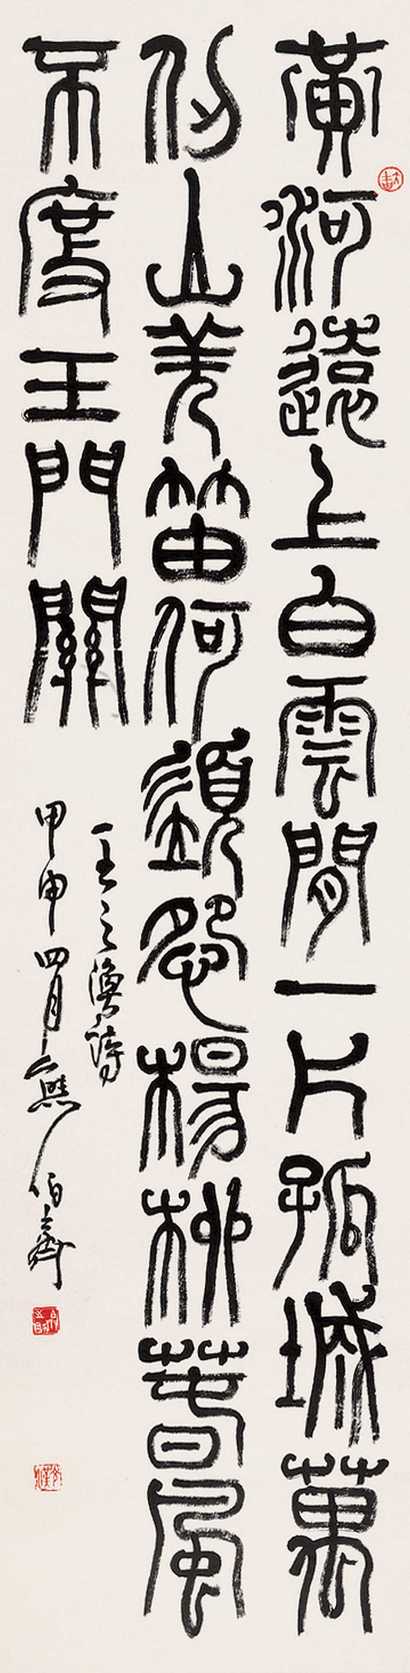 黃河遠上白雲間一片孤城萬
仞山羌笛何須怨楊柳春風
不度玉門關
王之渙詩
甲申四月熊伯齊